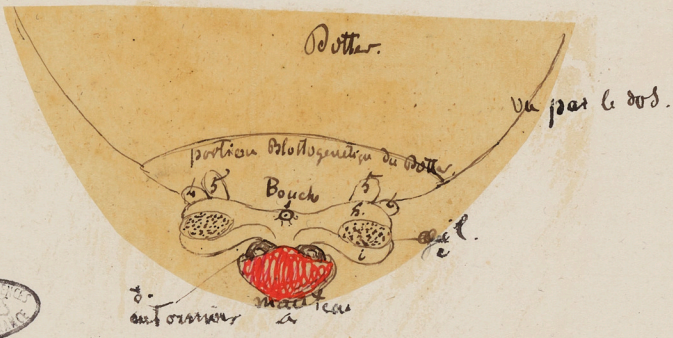 Dotter.
vu par le dos.
portion Blastogenetique du Dotter.
5 5 6
Bouche
h.
œil.
e
i
d.
entonnoir
manteau
a